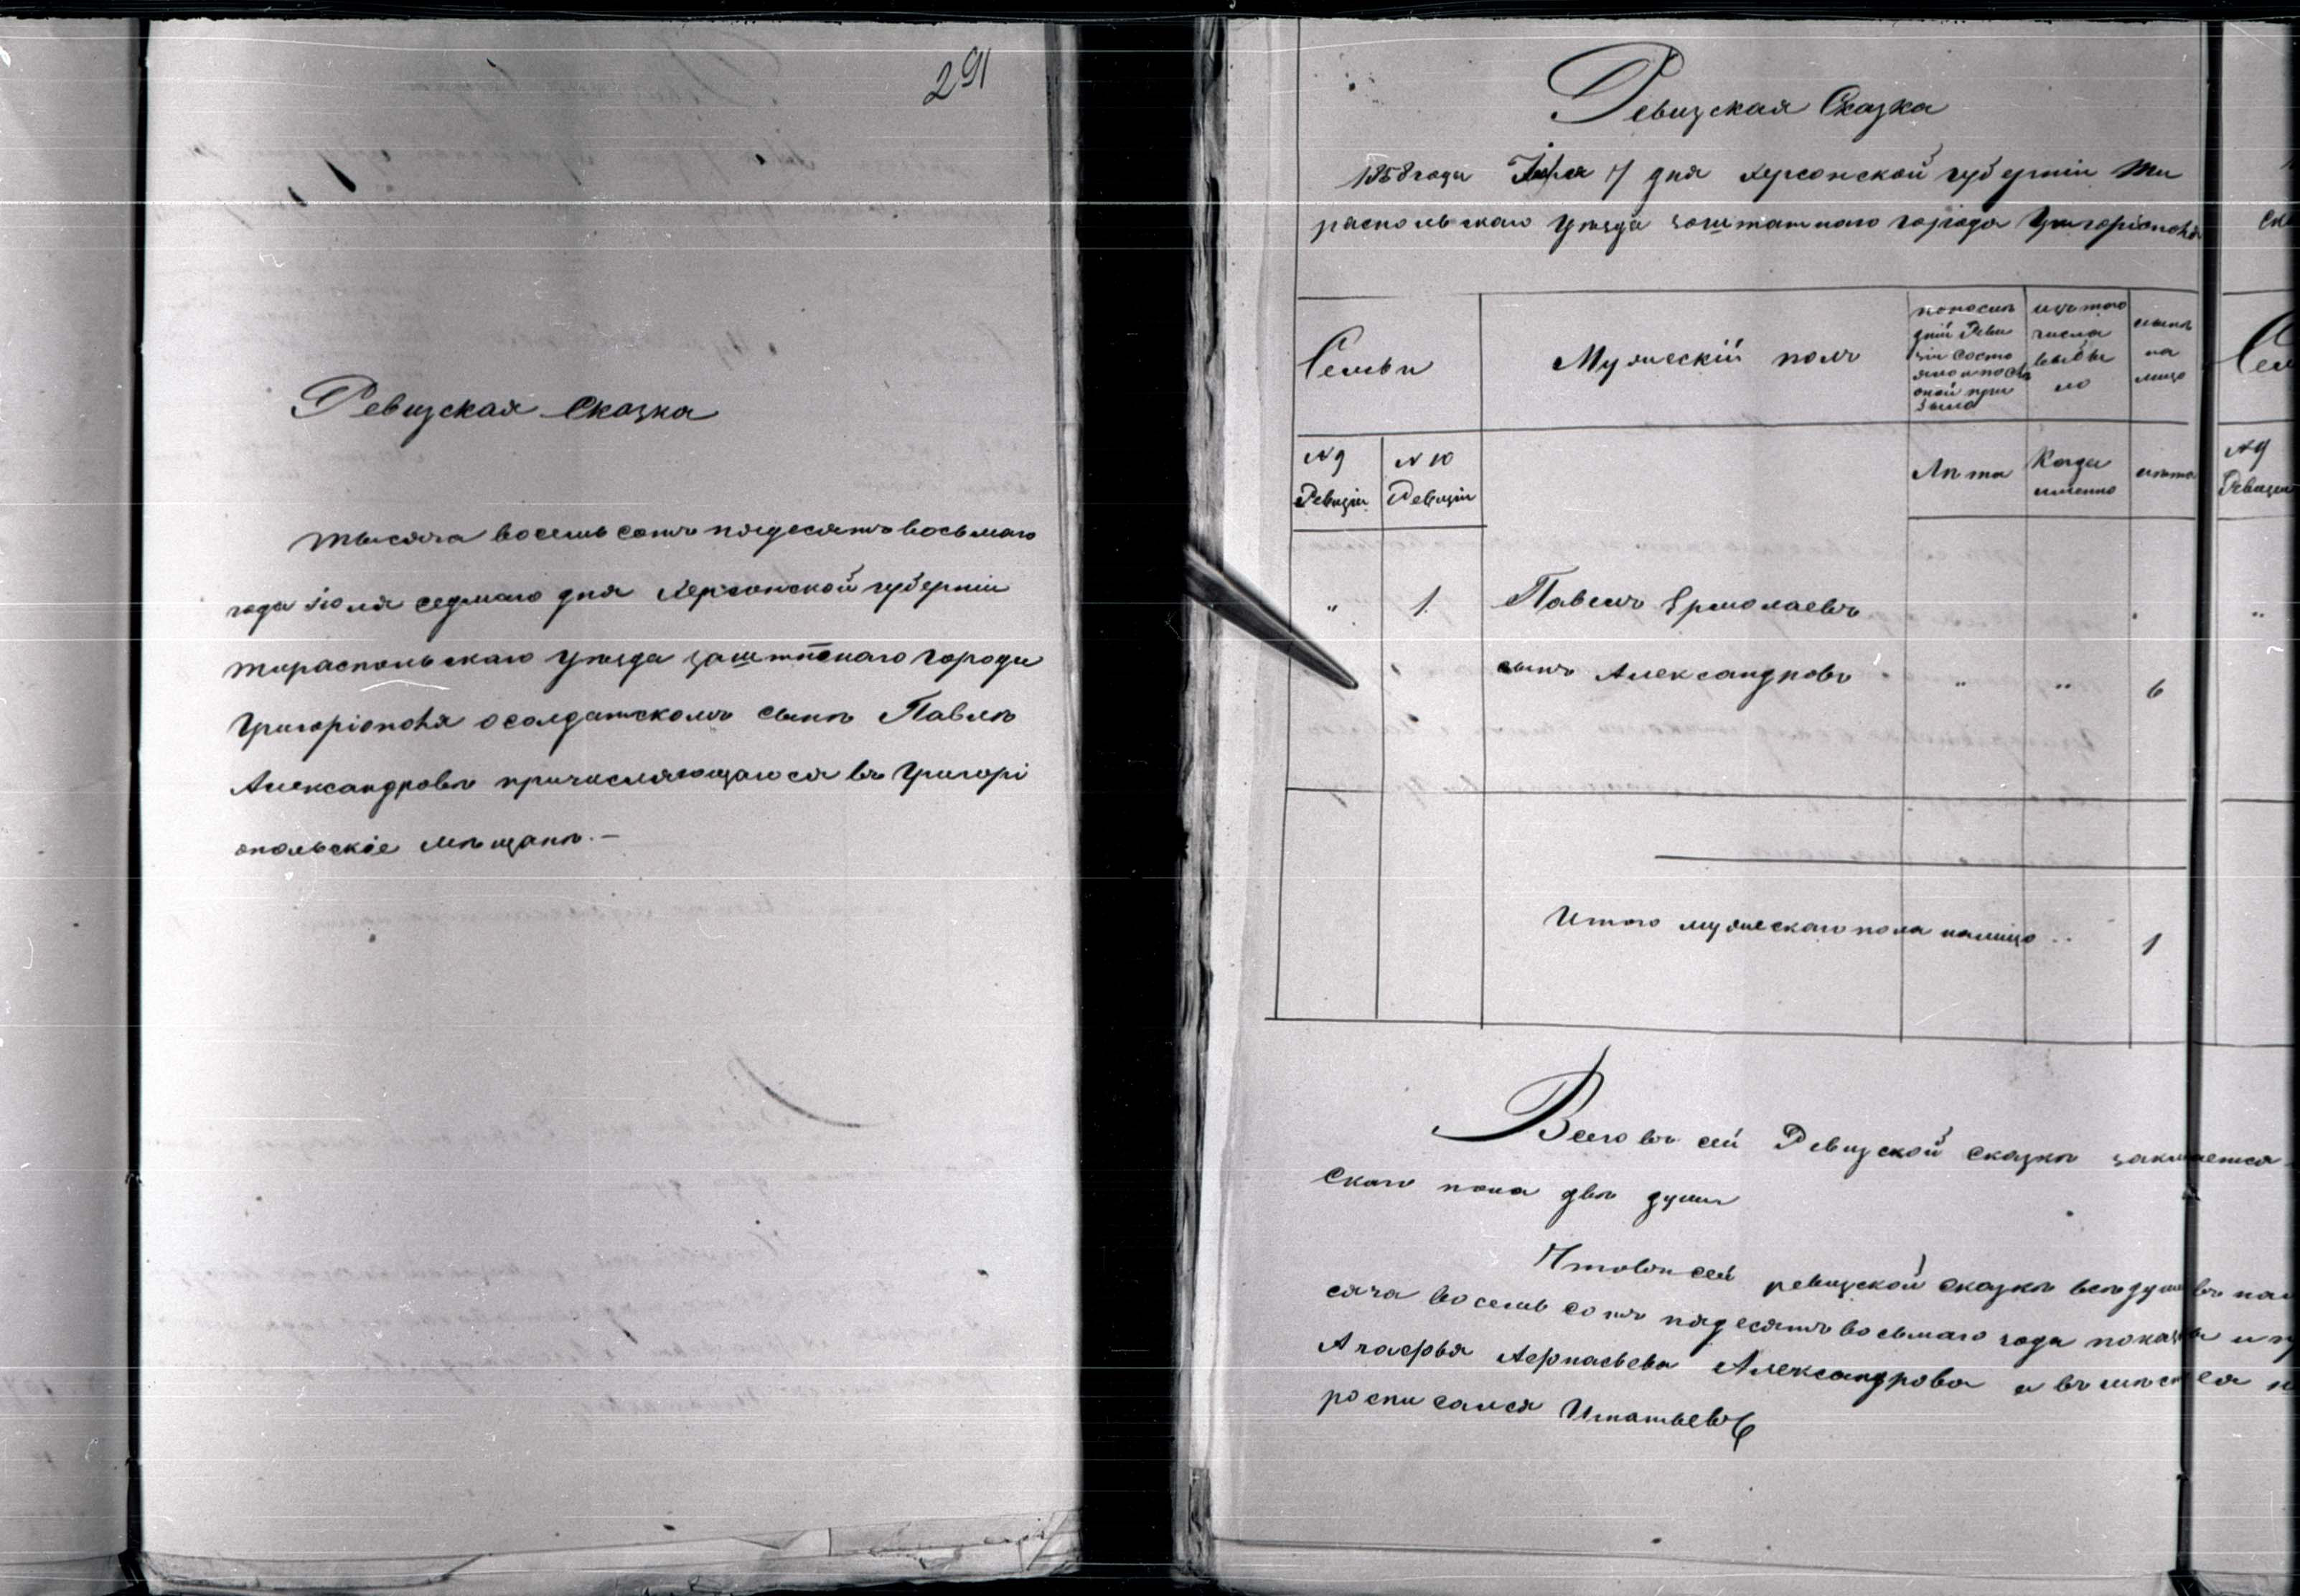 291
Ревизская сказка
Тысяча восемь сотъ пядесятъ восьмаго
года Іюля седмаго дня Херсонской губерніи
Тираспольскаго уезда заштатнаго города
Григоріополя о солдатскомъ сынѣ Павлѣ
Александровѣ причисляющагося въ Григорі
опольскіе мѣщанѣ. —
Ревизская Сказка
1858 года Іюля 7 дня Херсонской губерніи Ти
распольскаго уезда заштатнаго города Григоріополя
Семьи
Мужескій полъ
по послѣ
дній Реви
зіи состо
яло и послѣ
оной при
было
изъ того
числа
выбы
ло
нынѣ
на
лицо
Сем
№ 9
Ревизіи
№ 10
Ревизіи
Лѣта
Когда
именно
лѣта
№ 9
Ревизіи
" 1 Павелъ Ермолаевъ
сынъ Александровъ " " 6
Итого мужескаго пола налицо .. 1
Всего въ сей Ревизской сказкѣ
скаго пола двѣ души
Что въ сей ревизской сказкѣ всѣ души въ
сяча восемь сотъ пядесятъ восьмаго года
Агафья Афнасьева Александрова а въ
росписался Игнатьевъ